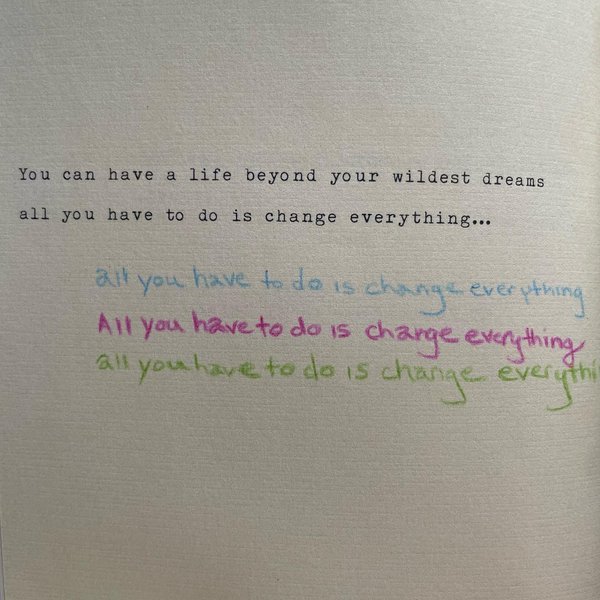 You can have a life beyond your wildest dreams
all you have to do is change everything...
all you have to do is change everything
All you have to do is change everything
all you have to do is change everythi